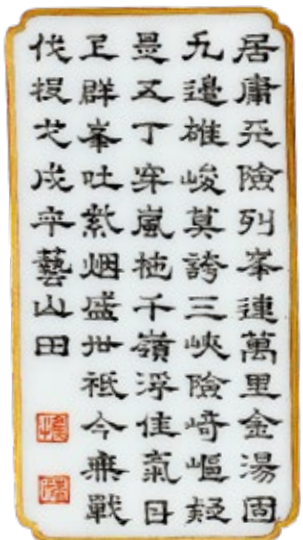 居庸天險列峯連萬里金湯固
九邊雄峻莫誇三峽險崎嶇疑
是五丁穿嵐拖千嶺浮佳氣日
群峯吐紫烟盛世祇今無戰
伐投戈戍卒藝山田